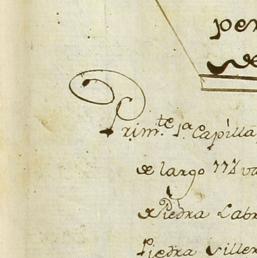 per
de
Prim.te la Capilla
de largo 11½ va
de Piedra Labr
Piedra Siller